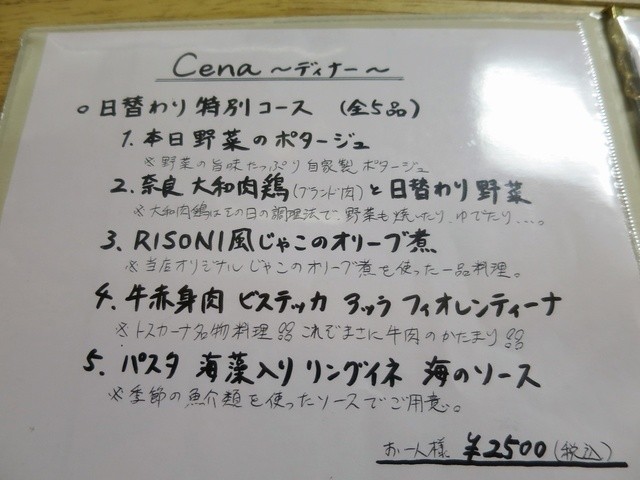 Cena ～ディナー～
○日替わり特別コース (全5品)
1. 本日野菜のポタージュ
※野菜の旨味たっぷり自家製ポタージュ
2. 奈良大和肉鶏(ブランド肉)と日替わり野菜
※大和肉鶏はその日の調理法で、野菜も焼いたり、ゆでたり...。
3. RISONI風じゃこのオリーブ煮
※当店オリジナルじゃこのオリーブ煮を使った一品料理。
4. 牛赤身肉 ビステッカ アッラ フィオレンティーナ
※トスカーナ名物料理!! これぞまさに牛肉のかたまり!!
5. パスタ 海藻入りリングイネ 海のソース
※季節の魚介類を使ったソースでご用意。
お一人様 ¥2500(税込)